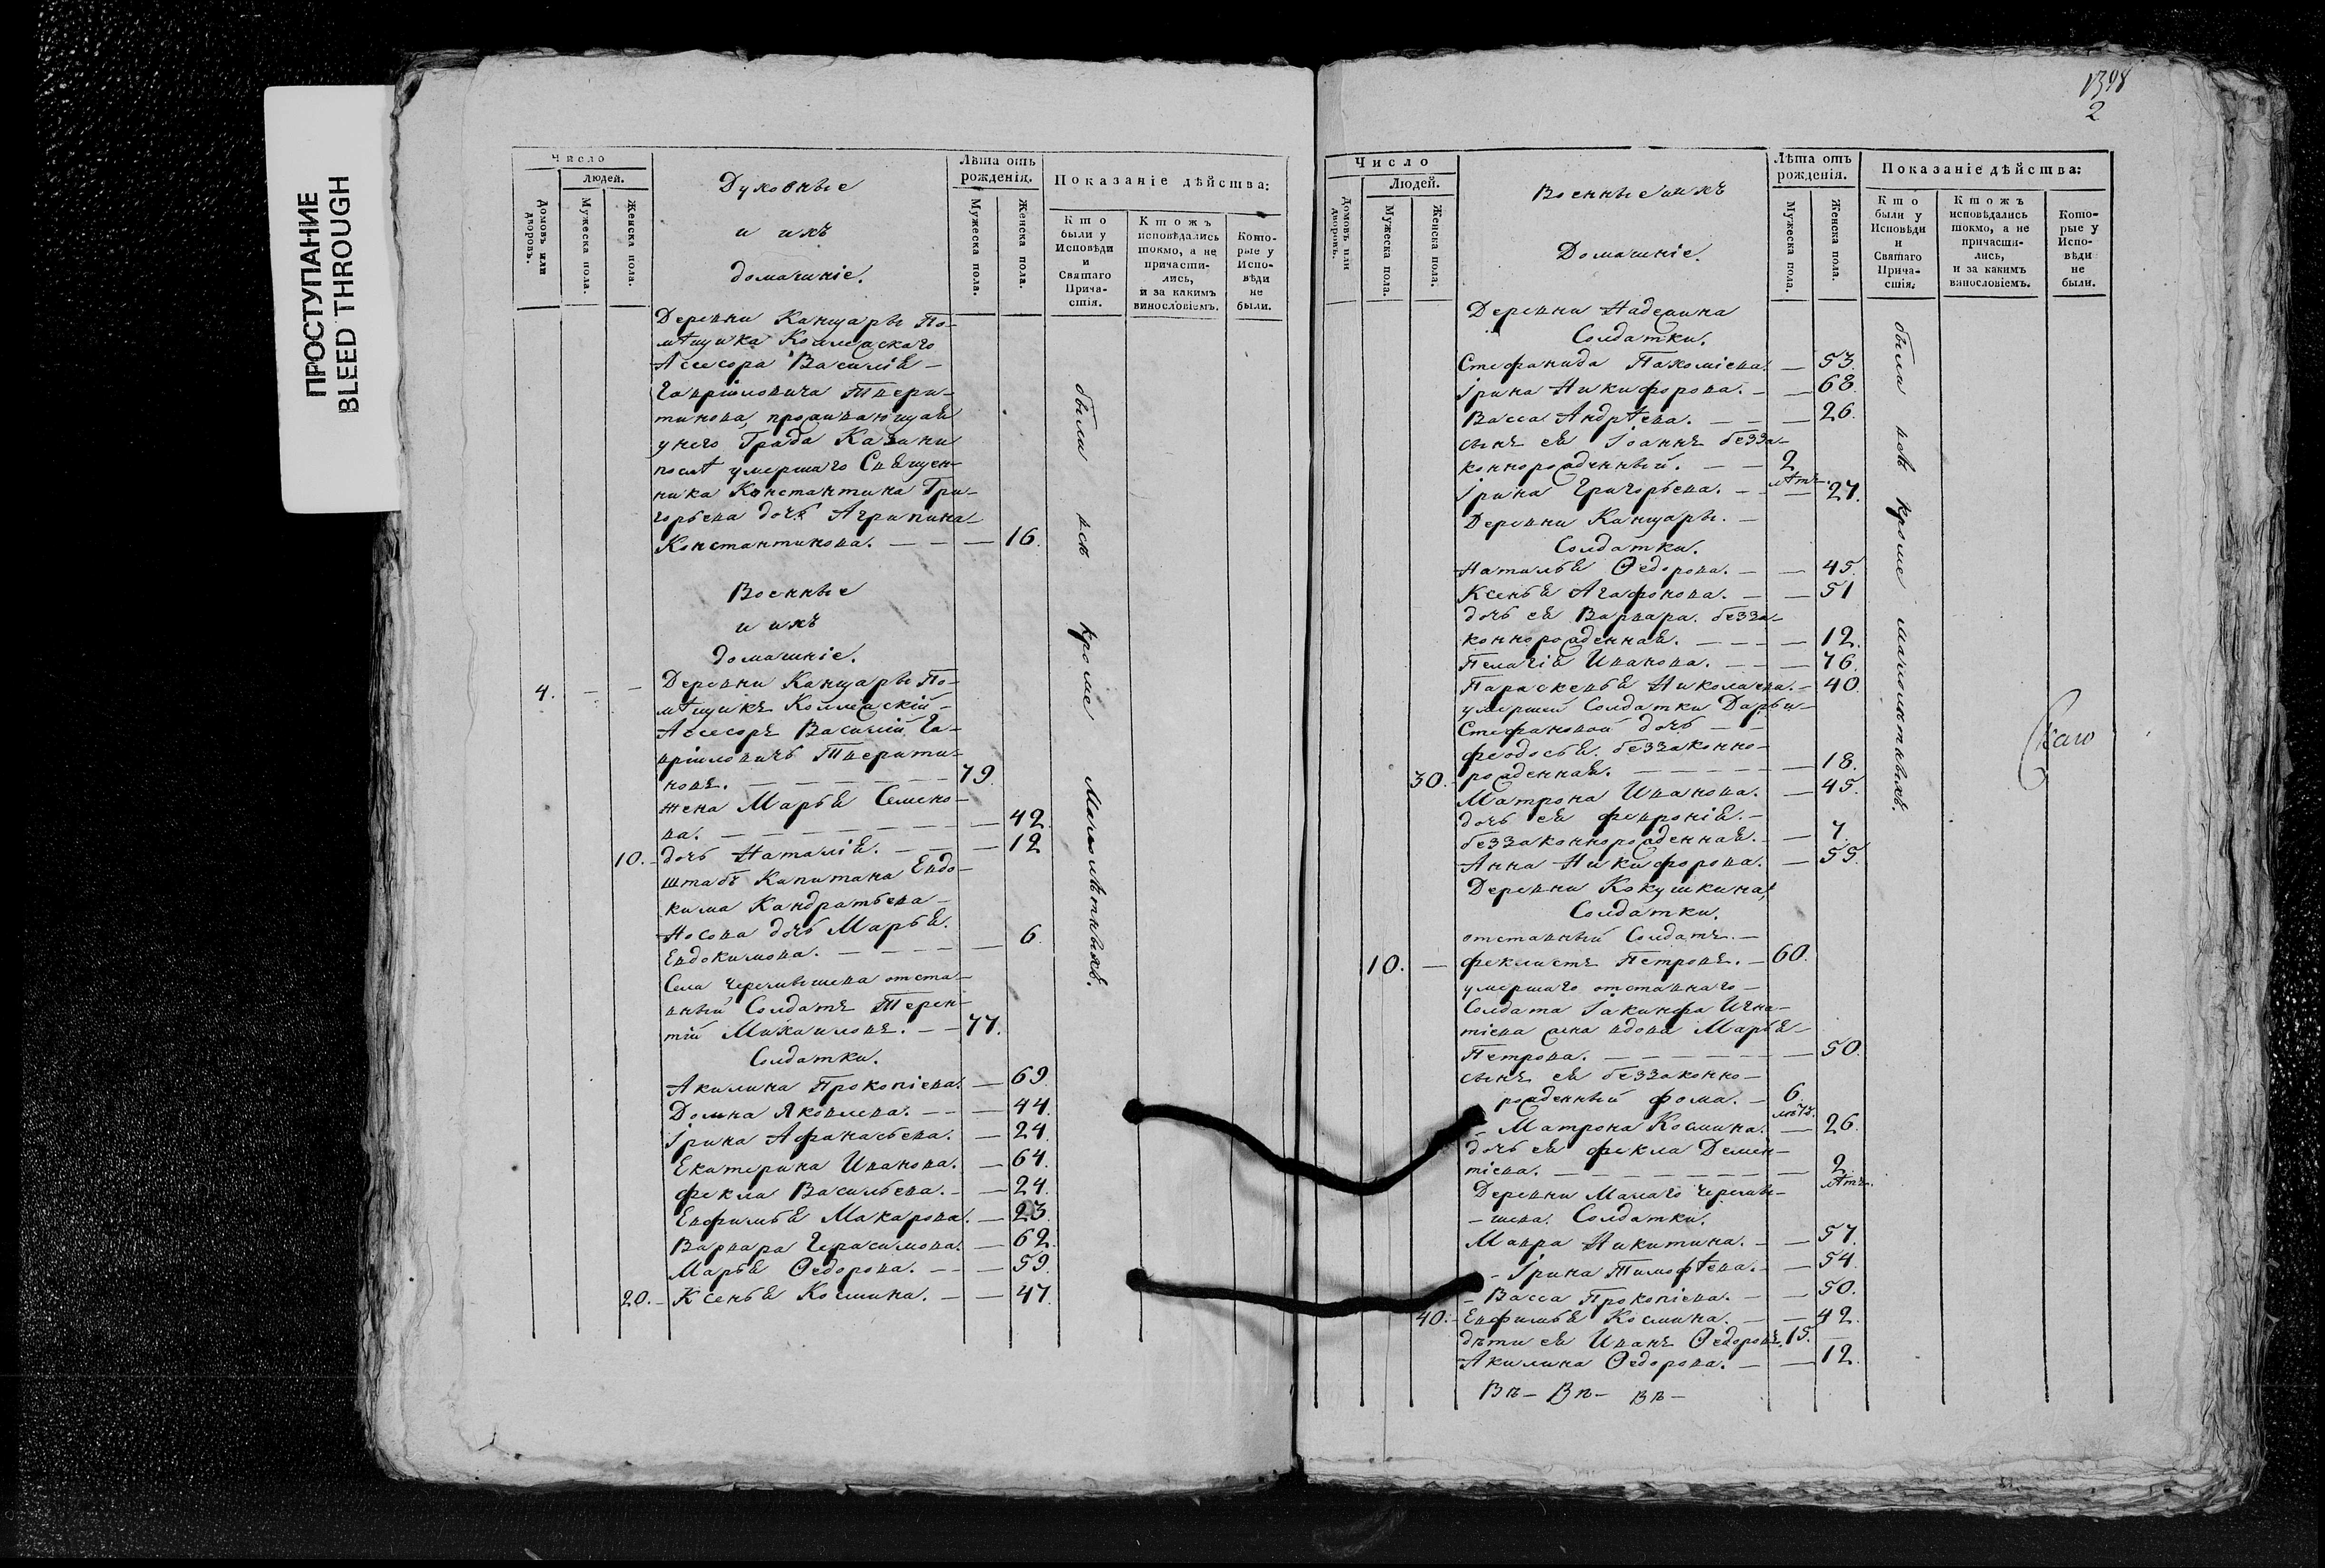 ПРОСТУПАНИЕ
BLEED THROUGH
Число
Людей.
Домовъ или дворовъ.
Мужеска пола.
Женска пола.
Духовные
и ихъ
домашніе.
Лѣта отъ рожденія.
Мужеска пола.
Женска пола.
Показаніе дѣйства:
Кто были у Исповѣди и Святаго Прича-стія.
Ктожъ исповѣдались токмо, а не причасти-лись, и за какимъ винословіемъ.
Кото-рые у Испо-вѣди не были.
Деревни Канцары По-
мѣщика Коллежскаго
Асесора Василія
Гавріиловича Твери-
тинова, проживающая
у него Града Казани
послѣ умершаго Священ-
ника Константина Гри-
горьева дочь Агрипина
Константинова. — — — 16.
Военные
и ихъ
домашніе.
4. — — Деревни Канцары По-
мѣщикъ Коллежскій
Асесоръ Василій Га-
вріиловичь Тверити-
новъ. — 79.
жена Марья Семено-
ва. — 42.
10. дочь Наталія. — 12
штабъ Капитана Евдо-
кима Кандратьева
Носова дочь Марья
Евдокимова. — 6.
Села Черемышева отста-
вный Солдатъ Терен-
тій Михаиловъ. — 77.
Солдатки.
Акилина Прокопіева. — 69.
Домна Яковлева. — 44.
Ірина Афанасьева. — 24.
Екатерина Иванова. — 64.
Фекла Васильева. — 24.
Евфимья Макарова. — 23.
Варвара Герасимова. — 62.
Марья Ѳедорова. — 59.
20. Ксенья Космина. — 47.
были всѣ кроме малолѣтныхъ.
1398
2
Число
Людей.
Домовъ или дворовъ.
Мужеска пола.
Женска пола.
Военные и ихъ
Домашніе.
Лѣта отъ рожденія.
Мужеска пола.
Женска пола.
Показаніе дѣйства:
Кто были у Исповѣди и Святаго Прича-стія.
Ктожъ исповѣдались токмо, а не причасти-лись, и за какимъ винословіемъ.
Кото-рые у Испо-вѣди не были.
Деревни Надеина
Солдатки.
Стефанида Пахоміева. — 53.
Ірина Никифорова. — 68.
Васса Андрѣева. — 26.
сынъ ея Іоаннъ безза-
коннорожденный. — 2 лѣтъ.
Ірина Григорьева. — 27.
Деревни Канцары.
Солдатки.
Наталья Ѳедорова. — 45.
Ксенья Агафонова. — 51
дочь ея Варвара. безза-
коннорожденная. — 12.
Пелагія Иванова. — 76.
Параскевья Николаева. — 40.
умершей Солдатки Дарьи
Стефановой дочь —
Феодосья. беззаконно-
30. рожденная. — 18.
Матрона Иванова. — 45.
дочь ея Февронія.
беззаконнорожденная. — 7.
Анна Никифорова. — 55.
Деревни Кокушкина,
Солдатки.
отставный Солдатъ.
10. — Феклистъ Петровъ. — 60.
умершаго отставнаго
Солдата Іакинфа Игна-
тіева жена вдова Марья
Петрова. — 50.
сынъ ея беззаконно-
рожденный Фома. — 6
Матрона Космина. — 26.
дочь ея Фекла Демен-
тіева. — 2 лѣтъ.
Деревни Малаго Черемы-
шева. Солдатки.
Мавра Никитина. — 57.
Ірина Тимофѣева. — 54.
Васса Прокопіева. — 50.
40. Евфимья Космина. — 42.
дѣти ея Иванъ Ѳедоровъ. 15.
Акилина Ѳедорова. — 12.
были всѣ кроме малолѣтныхъ.